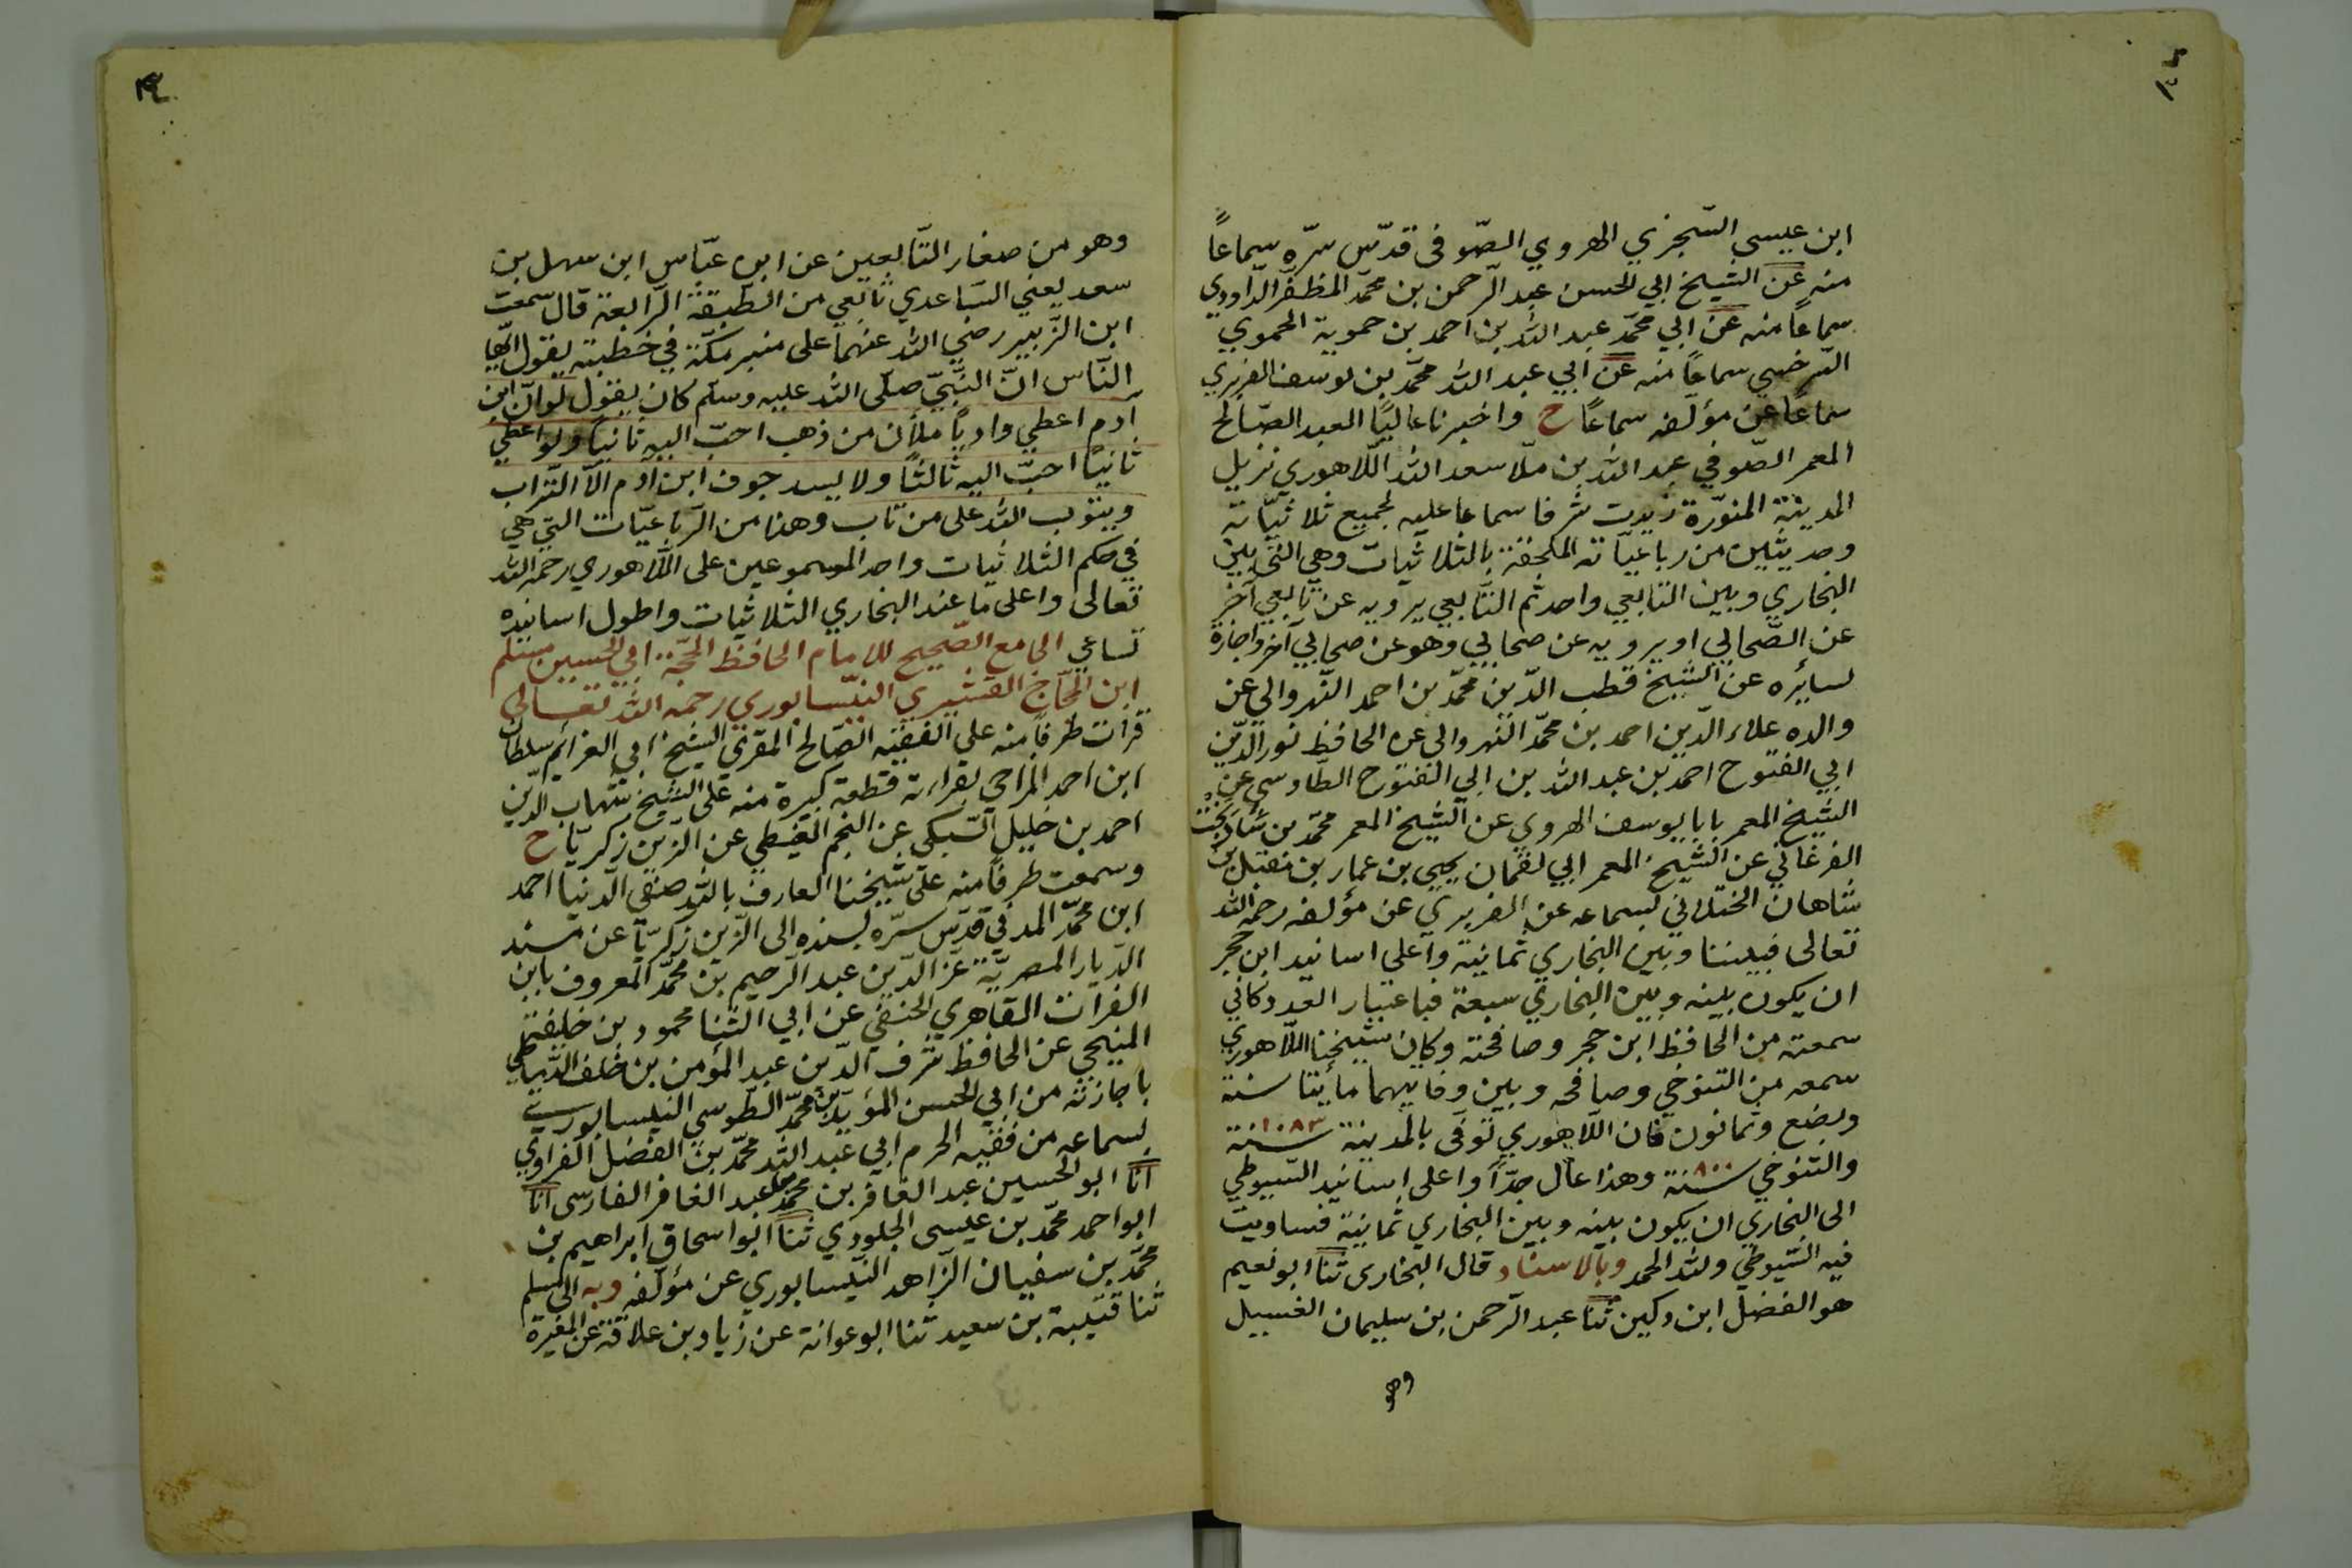 ابن عيسى السّجزي الهروي الصّوفى قدّس سرّه سماعاً
منه عن الشيخ ابي الحسن عبد الرّحمن بن محمّد المظفّر الدّاوودي
سماعاً منه عن ابي محمّد عبد الله بن احمد بن حموية الحموي
السّرخسي سماعاً منه عن ابي عبد الله محمّد بن يوسف الفربري
سماعاً عن مؤلّفه سماعاً ح واخبرنا عالياً العبد الصّالح
المعمر الصّوفي عبد الله بن ملّا سعد الله اللّاهوري نزيل
المدينة المنوّرة زيدت شرفا سماعا عليه لجميع ثلاثيّاته
وحديثين من رباعيّاته الملحقة بالثلاثيات وهي التي بين
البخاري وبين التابعي واحد ثم التّابعي يرويه عن تابعي آخر
عن الصّحابي او يرويه عن صحابي وهو عن صحابي آخر واجازة
لسائره عن الشيخ قطب الدّين محمّد بن احمد النّهروالي عن
والده علاء الدّين احمد بن محمّد النهروالى عن الحافظ نور الدّين
ابي الفتوح احمد بن عبد الله بن ابي الفتوح الطّاوسي عن
الشيخ المعمر بابا يوسف الهروي عن الشيخ المعمر محمّد بن شاد بخت
الفرغاني عن الشّيخ المعمر ابي لقمان يحيى بن عمار بن مقبل بن
شاهان الختلاني بسماعه عن الفربري عن مؤلفه رحمه الله
تعالى فبيننا وبين البخاري ثمانية واعلى اسانيد ابن حجر
ان يكون بينه وبين البخاري سبعة فباعتبار العدد كاني
سمعته من الحافظ ابن حجر وصافحته وكان شيخنا اللّاهوري
سمعه من التنوخي وصافحه وبين وفاتيهما مأيتا سنة
وبضع وثمانون فان اللّاهوري توفى بالمدينة سنة ١٠٨٣
والتنوخي سنة ٨٠٠ وهذا عال جدّاً واعلى اسانيد السّيوطي
الى البخاري ان يكون بينه وبين البخاري ثمانية فساويت
فيه السّيوطي ولله الحمد وبالاسناد قال البخارى ثنا ابو نعيم
هو الفضل ابن دكين ثنا عبد الرّحمن بن سليمان الغسيل
وهو
وهو من صغار التّابعين عن ابن عبّاس ابن سهل بن
سعد يعني السّاعدي تابعي من الطّبقة الرّابعة قال سمعت
ابن الزّبير رضي الله عنهما على منبر مكّة في خطبته يقول ايّها
النّاس انّ النّبيّ صلّى الله عليه وسلّم كان يقول لو انّ ابن
ادم اعطي وادياً ملأن من ذهب احبّ اليه ثانياً ولو اعطي
ثانياً احبّ اليه ثالثاً ولا يسد جوف ابن آدم الّا التّراب
ويتوب الله على من تاب وهذا من الرّباعيّات التي هي
في حكم الثلاثيات واحد المسموعين على اللّاهوري رحمه الله
تعالى واعلى ما عند البخاري الثلاثيات واطول اسانيده
تساعي الجامع الصّحيح للامام الحافظ الحجّة ابي الحسين مسلم
ابن الحجّاج القشيري النّيسابوري رحمه الله تعالى
قرأت طرفاً منه على الفقيه الصّالح المقري الشيخ ابي العزائم سلطان
ابن احمد المزاحي بقراءته قطعة كبيرة منه على الشيخ شهاب الدّين
احمد بن خليل السّبكي عن النجم الغيطي عن الزين زكريّا ح
وسمعت طرفاً منه على شيخنا العارف بالله صفي الدنيا احمد
ابن محمّد المدني قدّس سرّه بسنده الى الزّين زكريّا عن مسند
الدّيار المصريّة عزّ الدّين عبد الرّحيم بن محمّد المعروف بابن
الفرات القاهري الحنفي عن ابي الثّنا محمود بن خليفة
المنبجي عن الحافظ شرف الدّين عبد المؤمن بن خلف الدّمياطي
باجازته من ابي الحسن المؤيّد بن محمّد الطّوسي النيسابوري
بسماعه من فقيه الحرم ابي عبد الله محمّد بن الفضل الفراوي
انا ابو الحسين عبد الغافر بن محمّد عبد الغافر الفارسى انا
ابو احمد محمّد بن عيسى الجلودي ثنا ابو اسحاق ابراهيم بن
محمّد بن سفيان الزّاهد النّيسابوري عن مؤلّفه وبه الى مسلم
ثنا قتيبة بن سعيد ثنا ابو عوانة عن زياد بن علاقة عن المغيرة